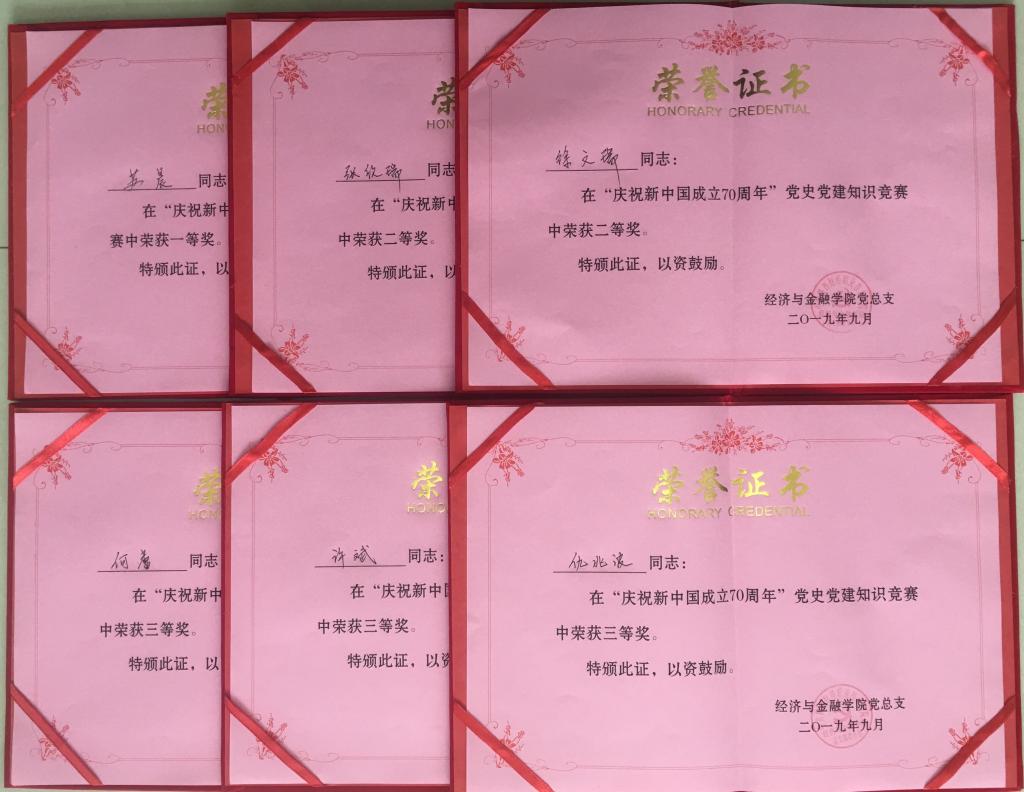 荣
HON
苏晨 同志
在“庆祝新中
赛中荣获一等奖。
特颁此证，以
荣
HON
张欣瑞 同志
在“庆祝新中
中荣获二等奖。
特颁此证，以
荣誉证书
HONORARY CREDENTIAL
徐文瑞 同志：
在“庆祝新中国成立70周年”党史党建知识竞赛
中荣获二等奖。
特颁此证，以资鼓励。
经济与金融学院党总支
二〇一九年九月
荣
HON
何 同志
在“庆祝新中
中荣获三等奖。
特颁此证，以
荣
HONO
许斌 同志：
在“庆祝新中国
中荣获三等奖。
特颁此证，以资
荣誉证书
HONORARY CREDENTIAL
仇兆浪 同志：
在“庆祝新中国成立70周年”党史党建知识竞赛
中荣获三等奖。
特颁此证，以资鼓励。
经济与金融学院党总支
二〇一九年九月